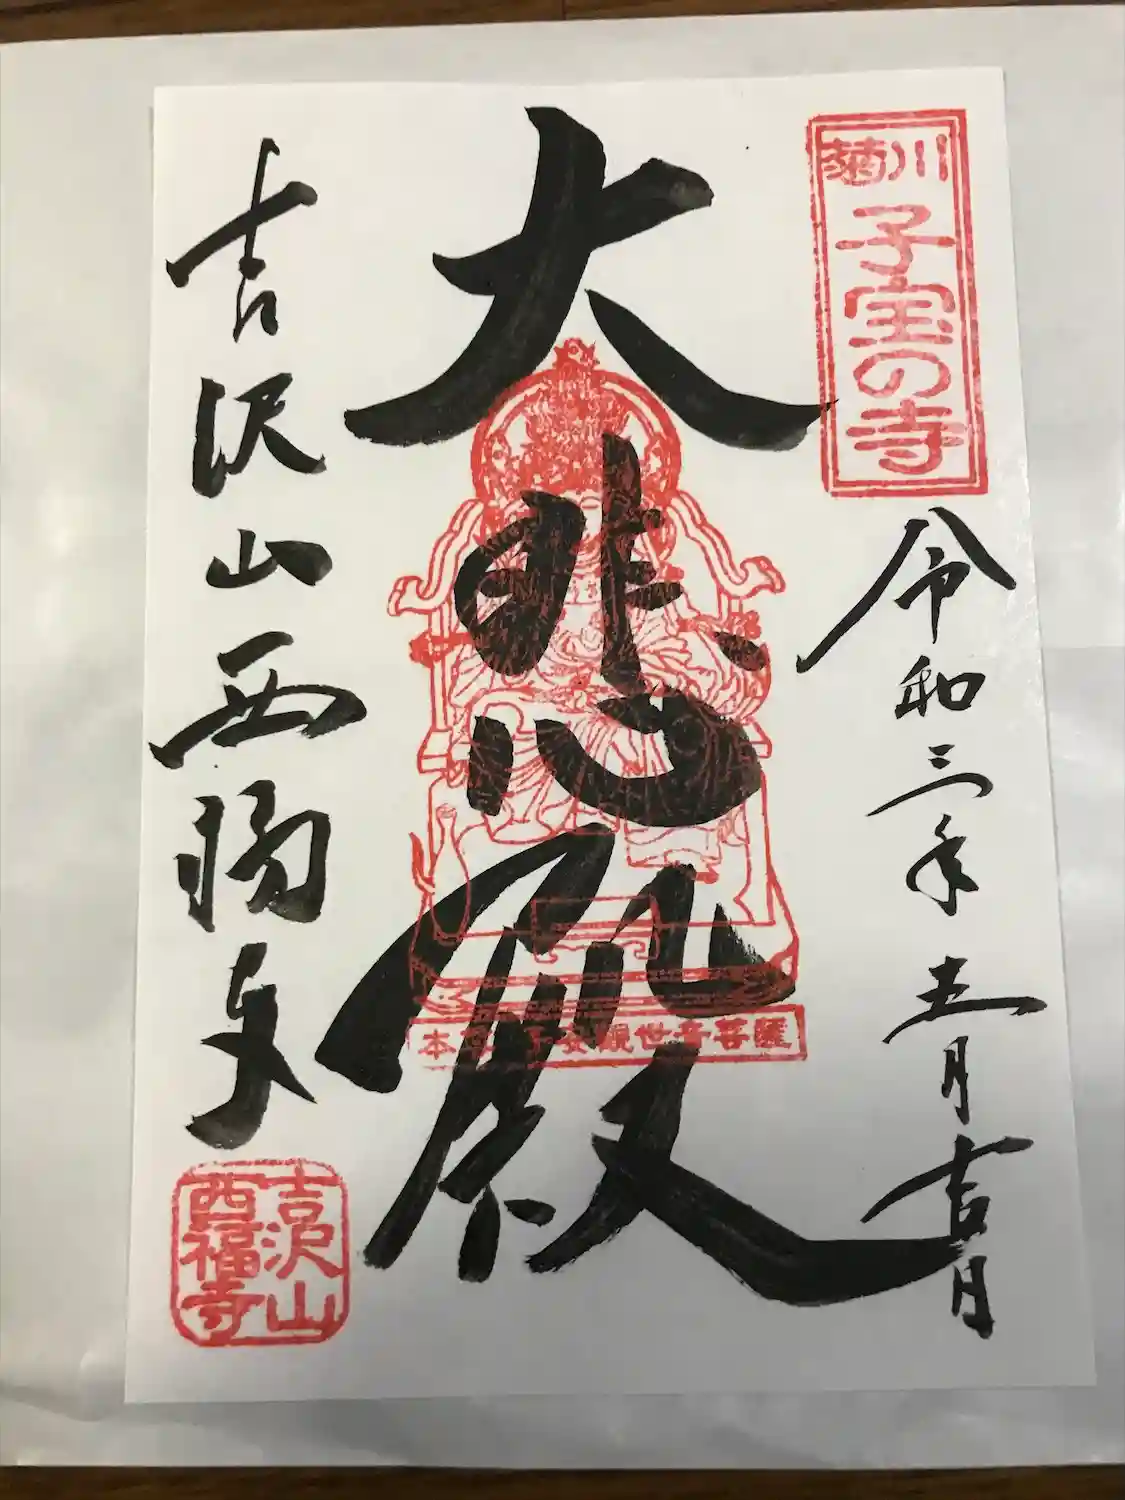 菊川
子宝の寺
令和三年五月吉日
大悲殿
本尊子安観世音菩薩
吉沢山西福寺
吉沢山
西福寺